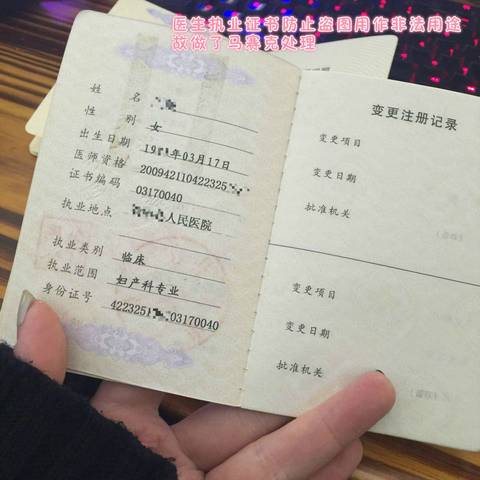 医生执业证书防止盗图用作非法用途
故做了马赛克处理
姓 名
性 别 女
出生日期 19 年03月17日
医师资格 200942110422325
证书编码 03170040
执业地点 人民医院
执业类别 临床
执业范围 妇产科专业
身份证号 422325 03170040
变更注册记录
变更项目
变更日期
批准机关
变更项目
变更日期
批准机关